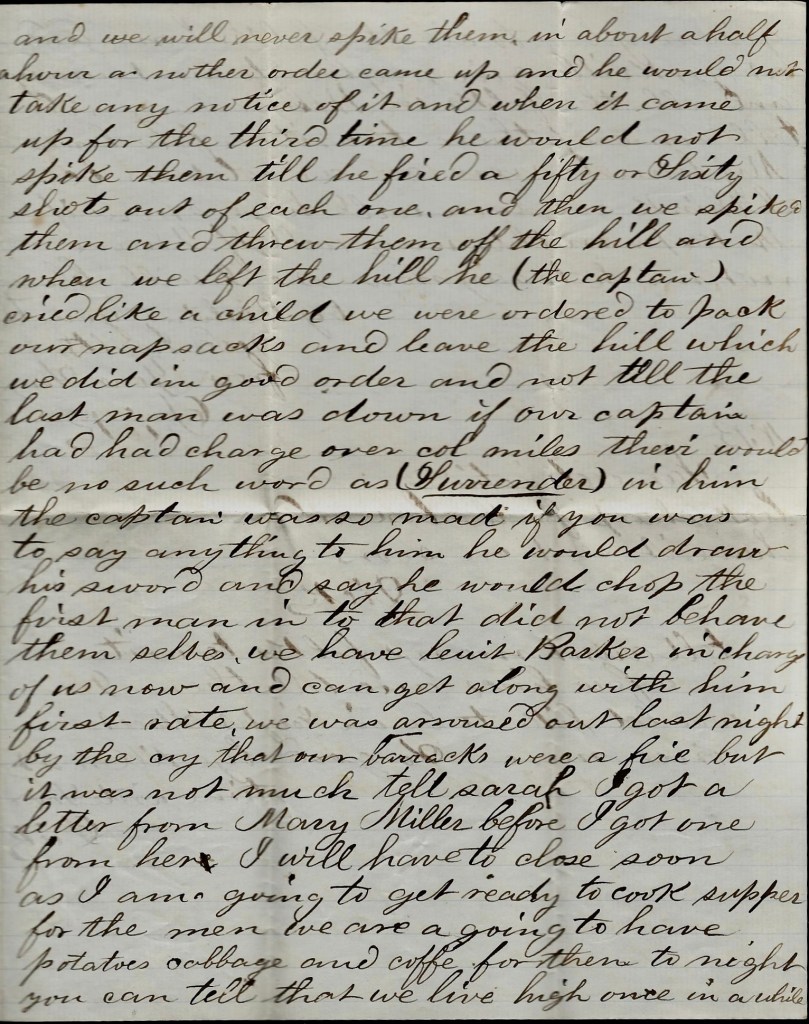 and we will never spike them. in about a half
ahour a nother order came up and he would not
take any notice of it and when it came
up for the third time he would not
spike them till he fired a fifty or Sixty
shots out of each one. and then we spiked
them and threw them off the hill and
when we left the hill he (the captain)
cried like a child we were ordered to pack
our napsacks and leave the hill which
we did in good order and not till the
last man was down if our captain
had had charge over col miles their would
be no such word as (Surrender) in him
the captain was so mad if you was
to say anything to him he would draw
his sword and say he would chop the
first man in to that did not behave
them selves. we have leuit Barker in charg
of us now and can get along with him
first-rate, we was arroused out last night
by the cry that our barracks were a fire but
it was not much tell sarah I got a
letter from Mary Miller before I got one
from her I will have to close soon
as I am going to get ready to cook supper
for the men we are a going to have
potatoes cabbage and coffe for them to night
you can tell that we live high once in a while